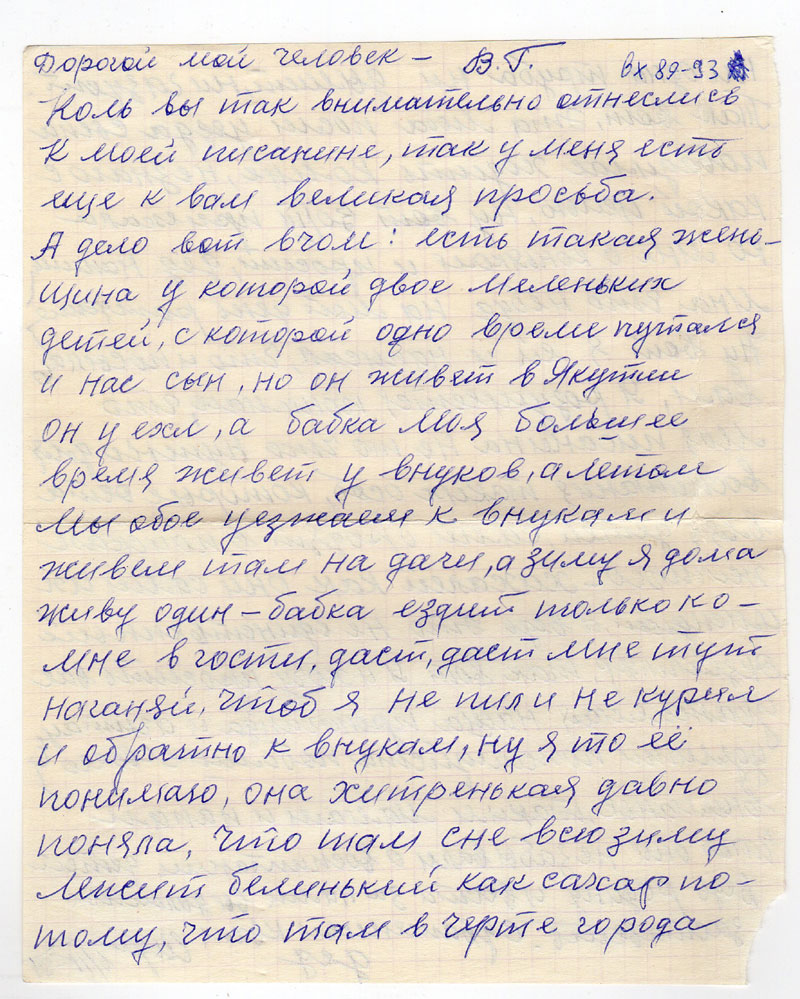 Дорогой мой человек – В.Г. вх 89-93
Коль вы так внимательно отнеслись
к моей писанине, так у меня есть
еще к вам великая просьба.
А дело вот вчом: есть такая жень-
щина у которой двое меленьких
детей, с которой одно време путался
и нас сын, но он живет в Якутии
он уехл, а бабка моя большее
время живет у внуков, а летом
мы обое уезжаем к внукам и
живем там на дачи, а зиму я дома
живу один – бабка ездит только ко-
мне в гости, даст, даст мне тут
наганяй, чтоб я не пил и не курил
и обратно к внукам, ну я то её
понимаю, она хитренькая давно
поняла, что там сне всю зиму
лежит белинький как сахар по-
тому, что там в черте города